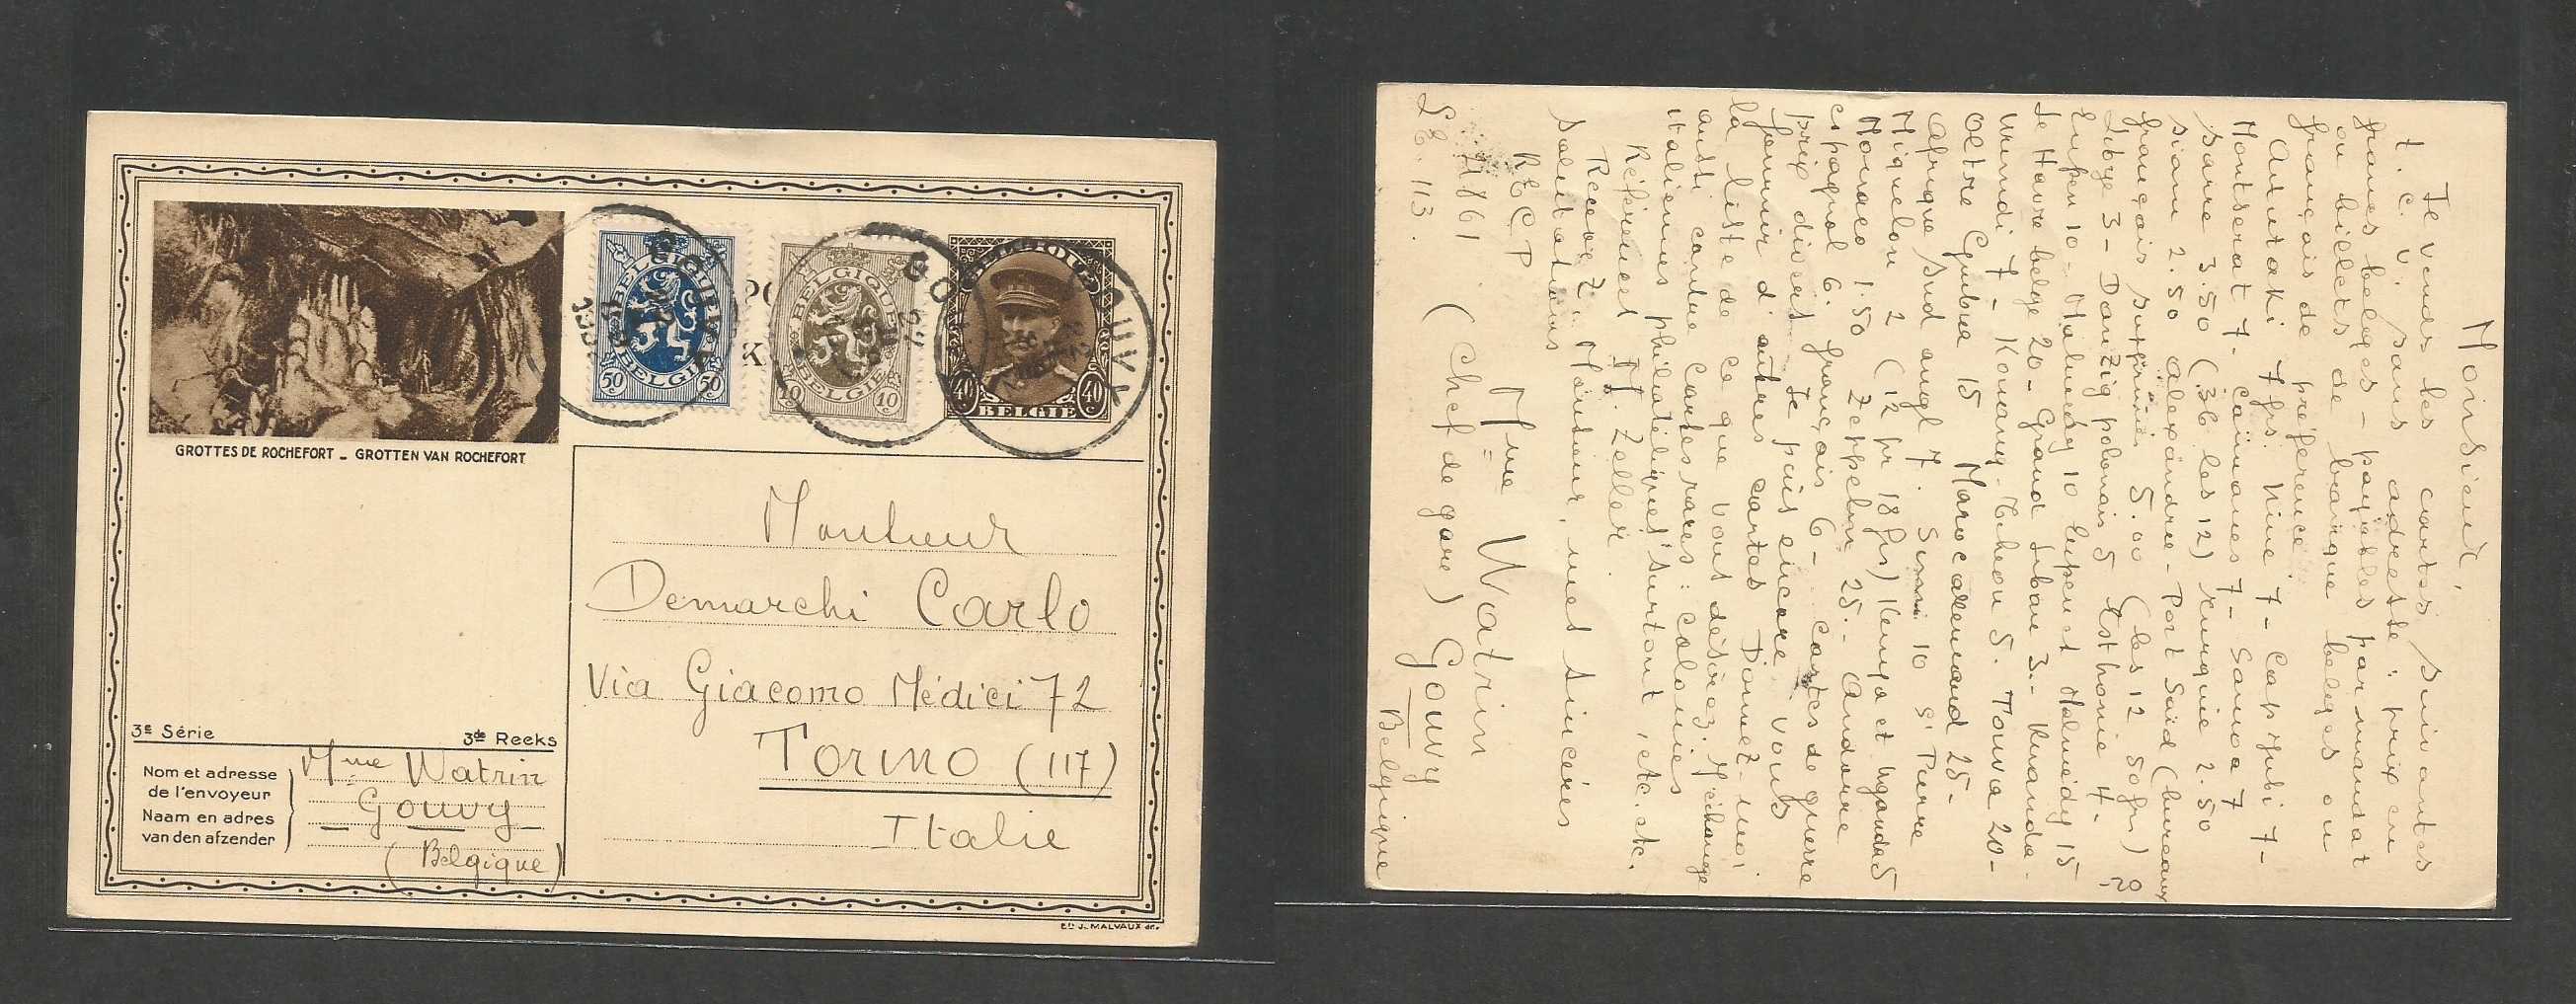 GROTTES DE ROCHEFORT - GROTTEN VAN ROCHEFORT
BELGIQUE
BELGIË
50 50
BELGIQUE
BELGIË
10 10
BELGIQUE
40 40
BELGIË
GOUVY
Monsieur
Demarchi Carlo
Via Giacomo Médici 72
Torino (117)
Italie
3e Série 3de Reeks
Nom et adresse
de l'envoyeur
Naam en adres
van den afzender
Mme Watrin
Gouvy
(Belgique)
Ed. J. MALVAUX
Monsieur,
Je vends les cartes suivantes
t. c. v. sans adresse: prix en
francs belges - payables par mandat
ou billets de banque belges ou
français de préférence.
Aitutaki 7 frs. Niue 7 - Cap Jubi 7 -
Montserat 7 - Caïmanes 7 - Samoa 7
Sarre 3.50 (36 les 12) Turquie 2.50
Siam 2.50 Alexandrie - Port Saïd (bureaux
français supprimés 5.00 (les 12 50 frs)
Libye 3 - Danzig polonais 5 Esthonie 4 -
Eupen 10 - Malmédy 10 Eupen et Malmédy 15
Le Havre belge 20 - Grand Liban 3 - Ruanda
Urundi 7 - Kouang-Tcheou 5. Touva 20 -
Oltre Giuba 15 Maroc allemand 25 -
Afrique Sud angl 7. 10 St Pierre
Miquelon 2 (12 pr 18 frs) Kenya et Uganda 5
Monaco 1.50 Zeppelin 25. - Andorre
espagnol 6. français 6 - cartes de guerre
prix divers. Je puis encore vous
fournir d'autres cartes Donnez-moi
la liste de ce que vous désirez. J'échange
aussi contre cartes rares: colonies
italiennes philatéliques surtout, etc. etc.
Références M. Zeller.
Recevez, Monsieur, mes sincères
salutations
Mme Watrin
(Chef de gare) Gouvy
Belgique